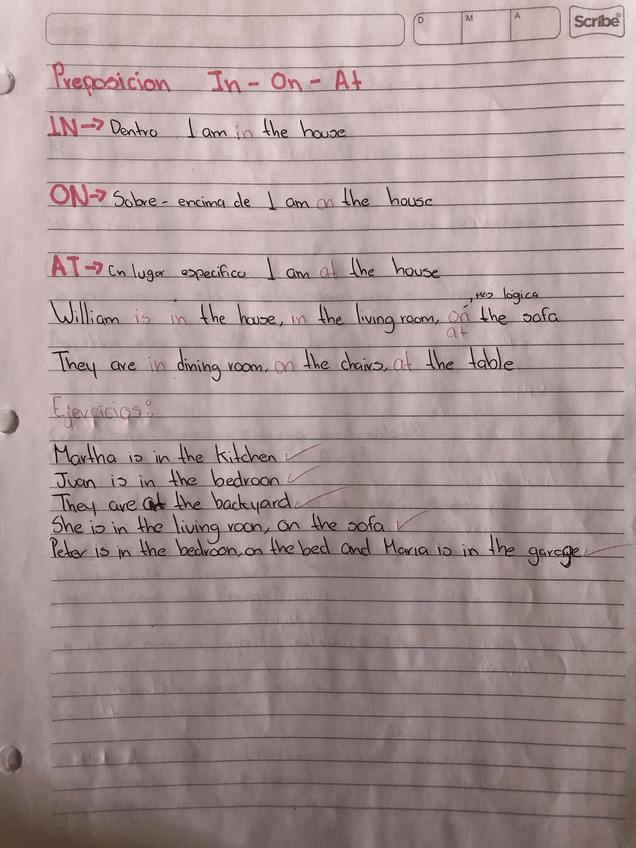 D M A Scribe®
Preposicion In - On - At
IN→ Dentro I am in the house
ON→ Sobre - encima de I am on the house
AT→ En lugar especifico I am at the house
, mas logica
William is in the house, in the living room, on the sofa
at
They are in dining room, on the chairs, at the table
Ejercicios:
Martha is in the kitchen ✓
Juan is in the bedroon ✓
They are at the backyard ✓
She is in the living roon, on the sofa ✓
Peter is in the bedroon, on the bed and Maria is in the garage ✓